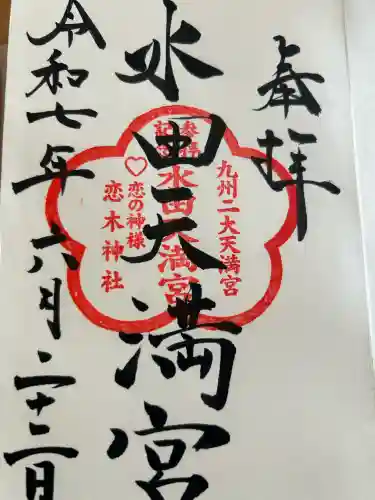 奉拝
水田天満宮
令和七年六月二十二日
参拝
記念
九州二大天満宮
水田天満宮
♡恋の神様
恋木神社